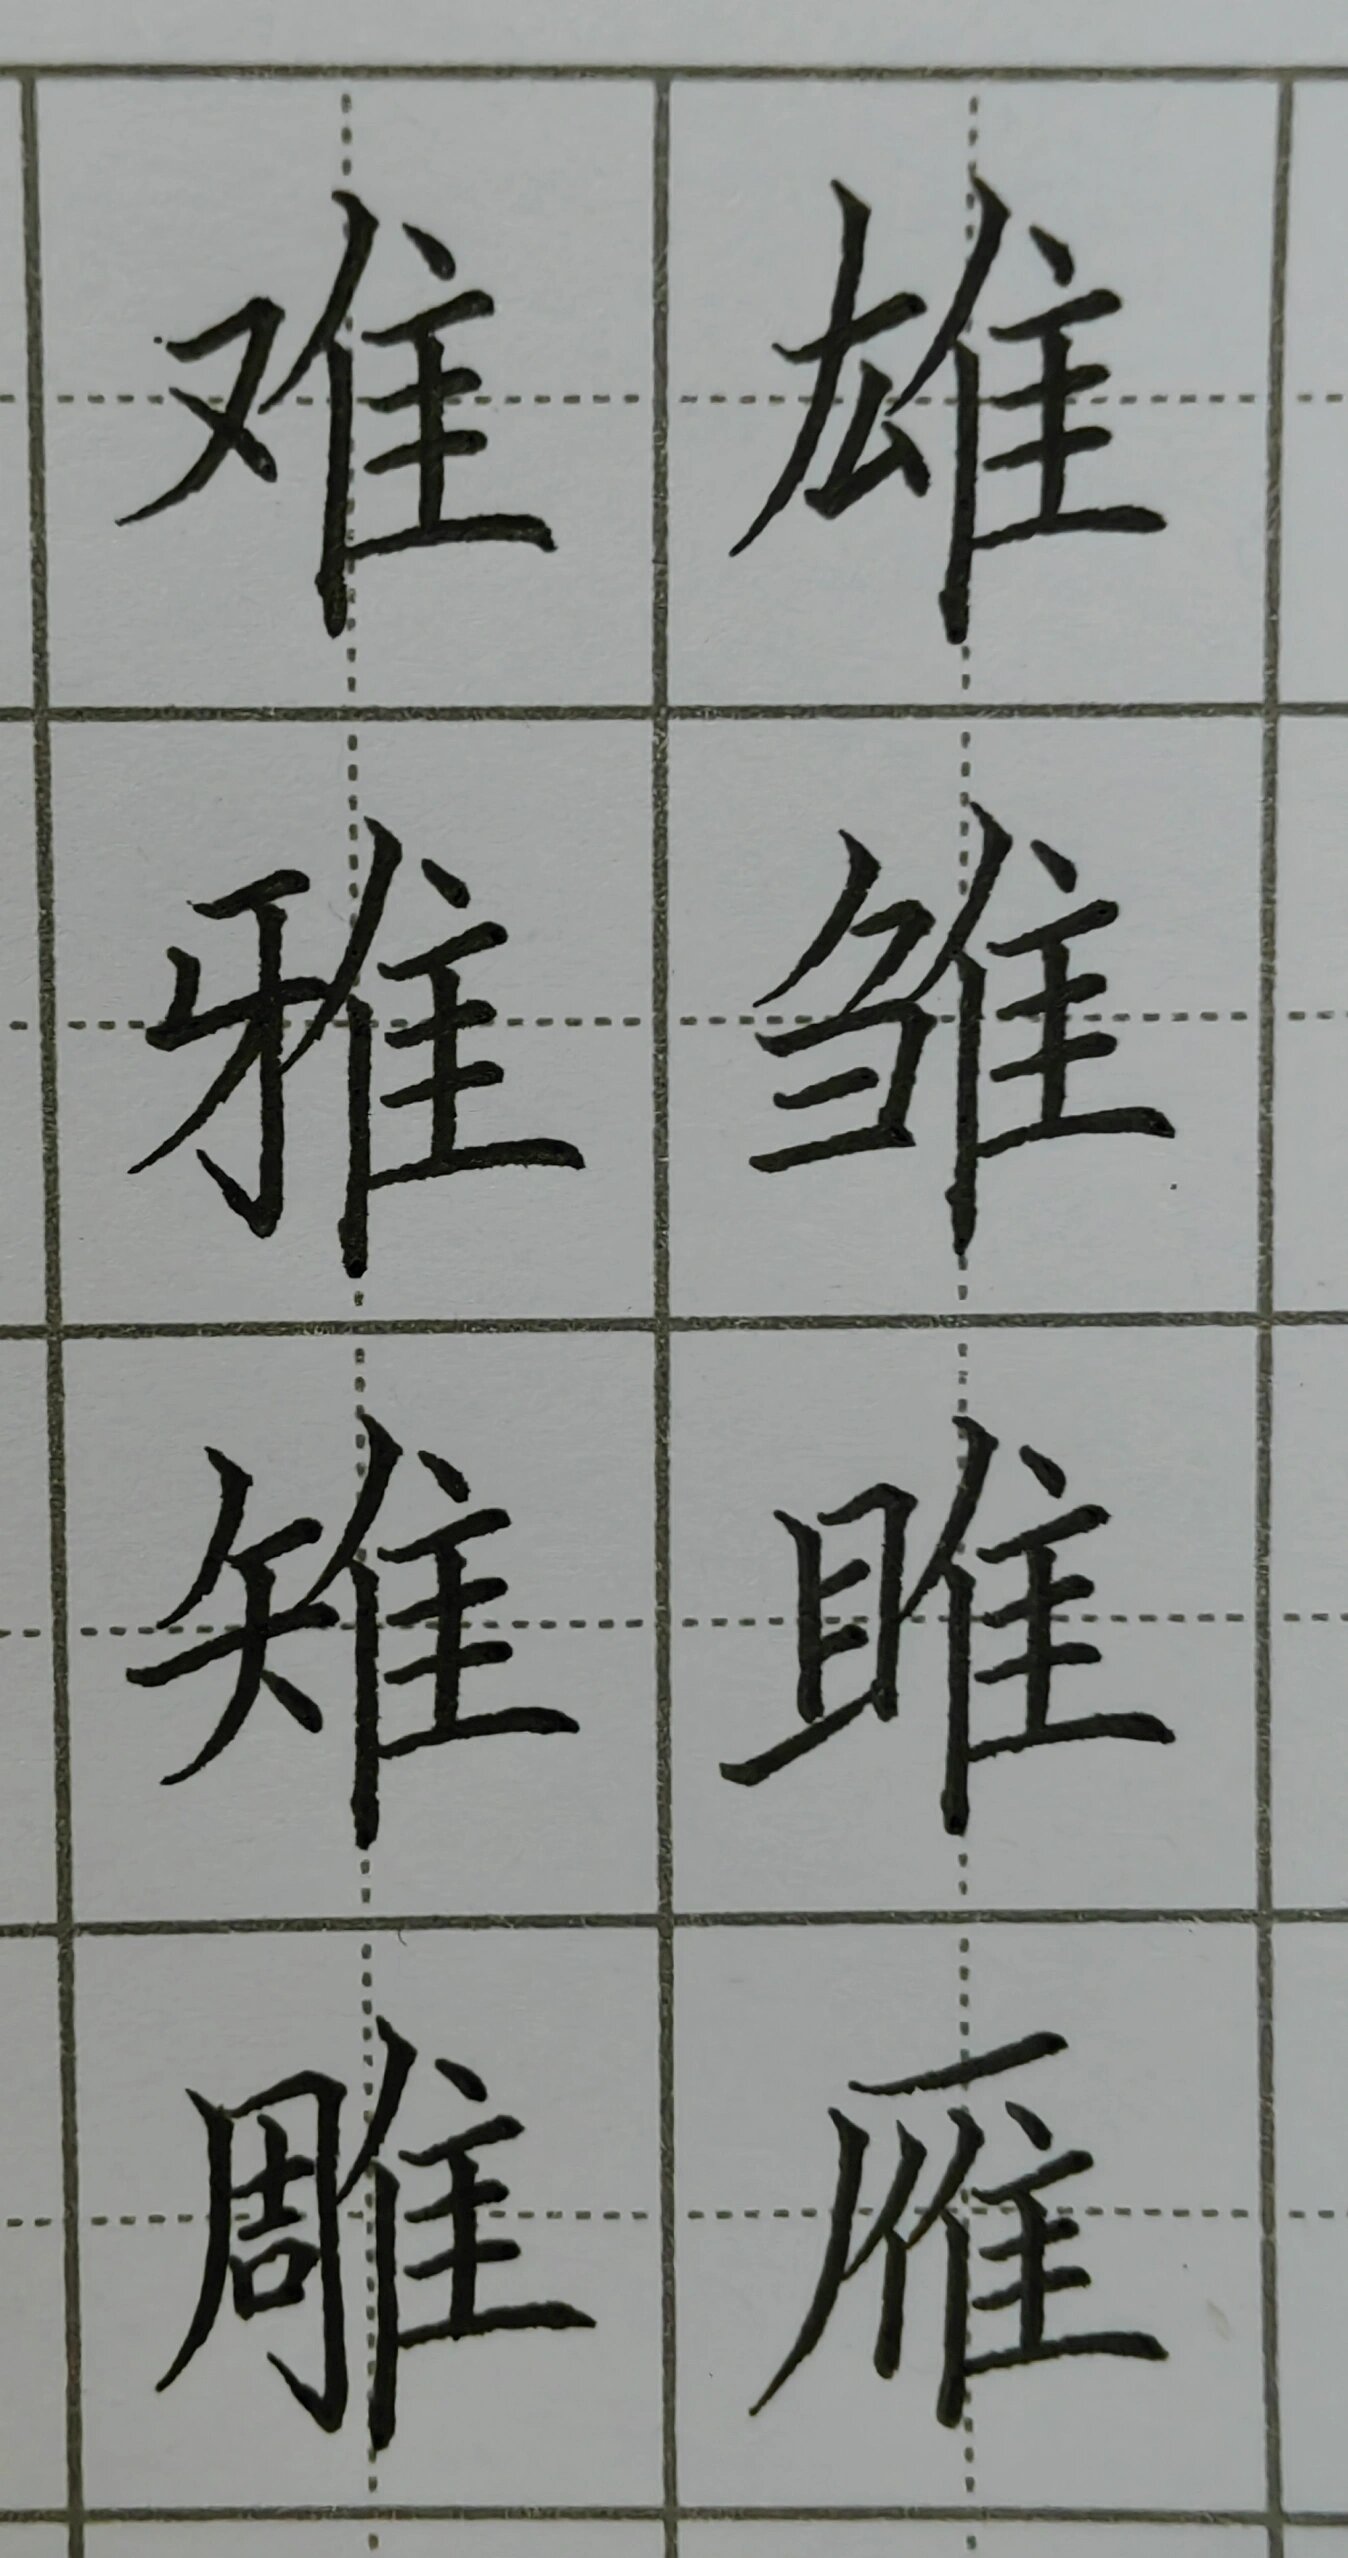 难雄
雅雏
雉雎
雕雁